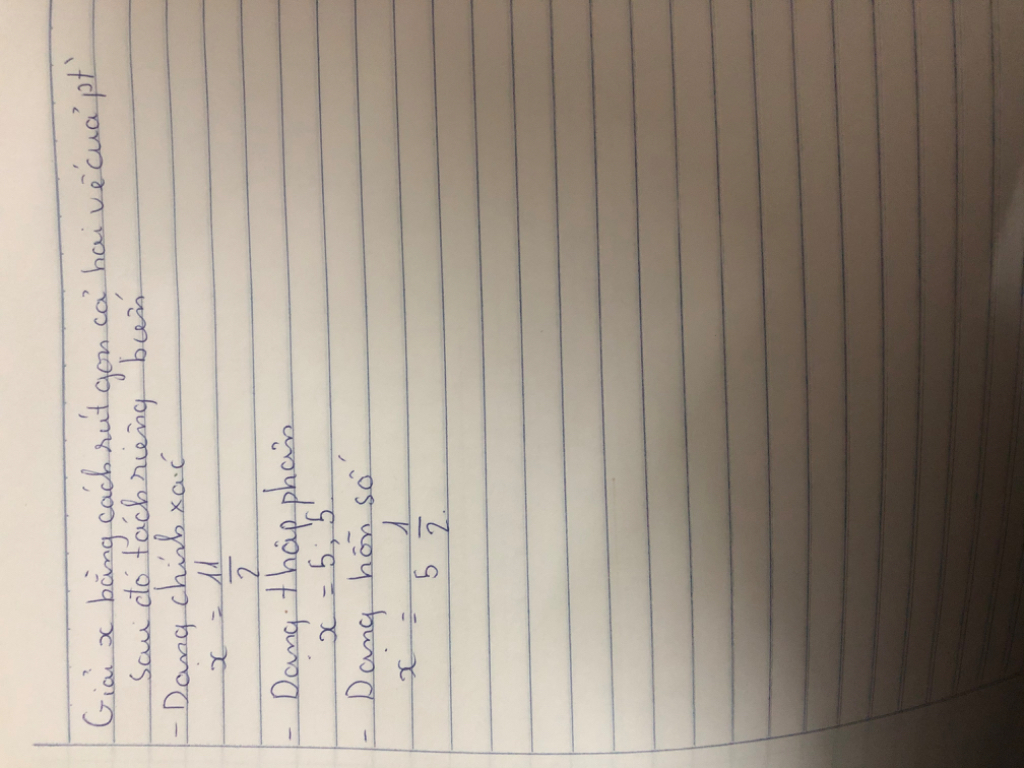 Giải x bằng cách rút gọn cả hai vế của pt
sau đó tách riêng biến
- Dạng chính xác
x = 11/2
- Dạng thập phân
x = 5,5
- Dạng hỗn số
x = 5 1/2.